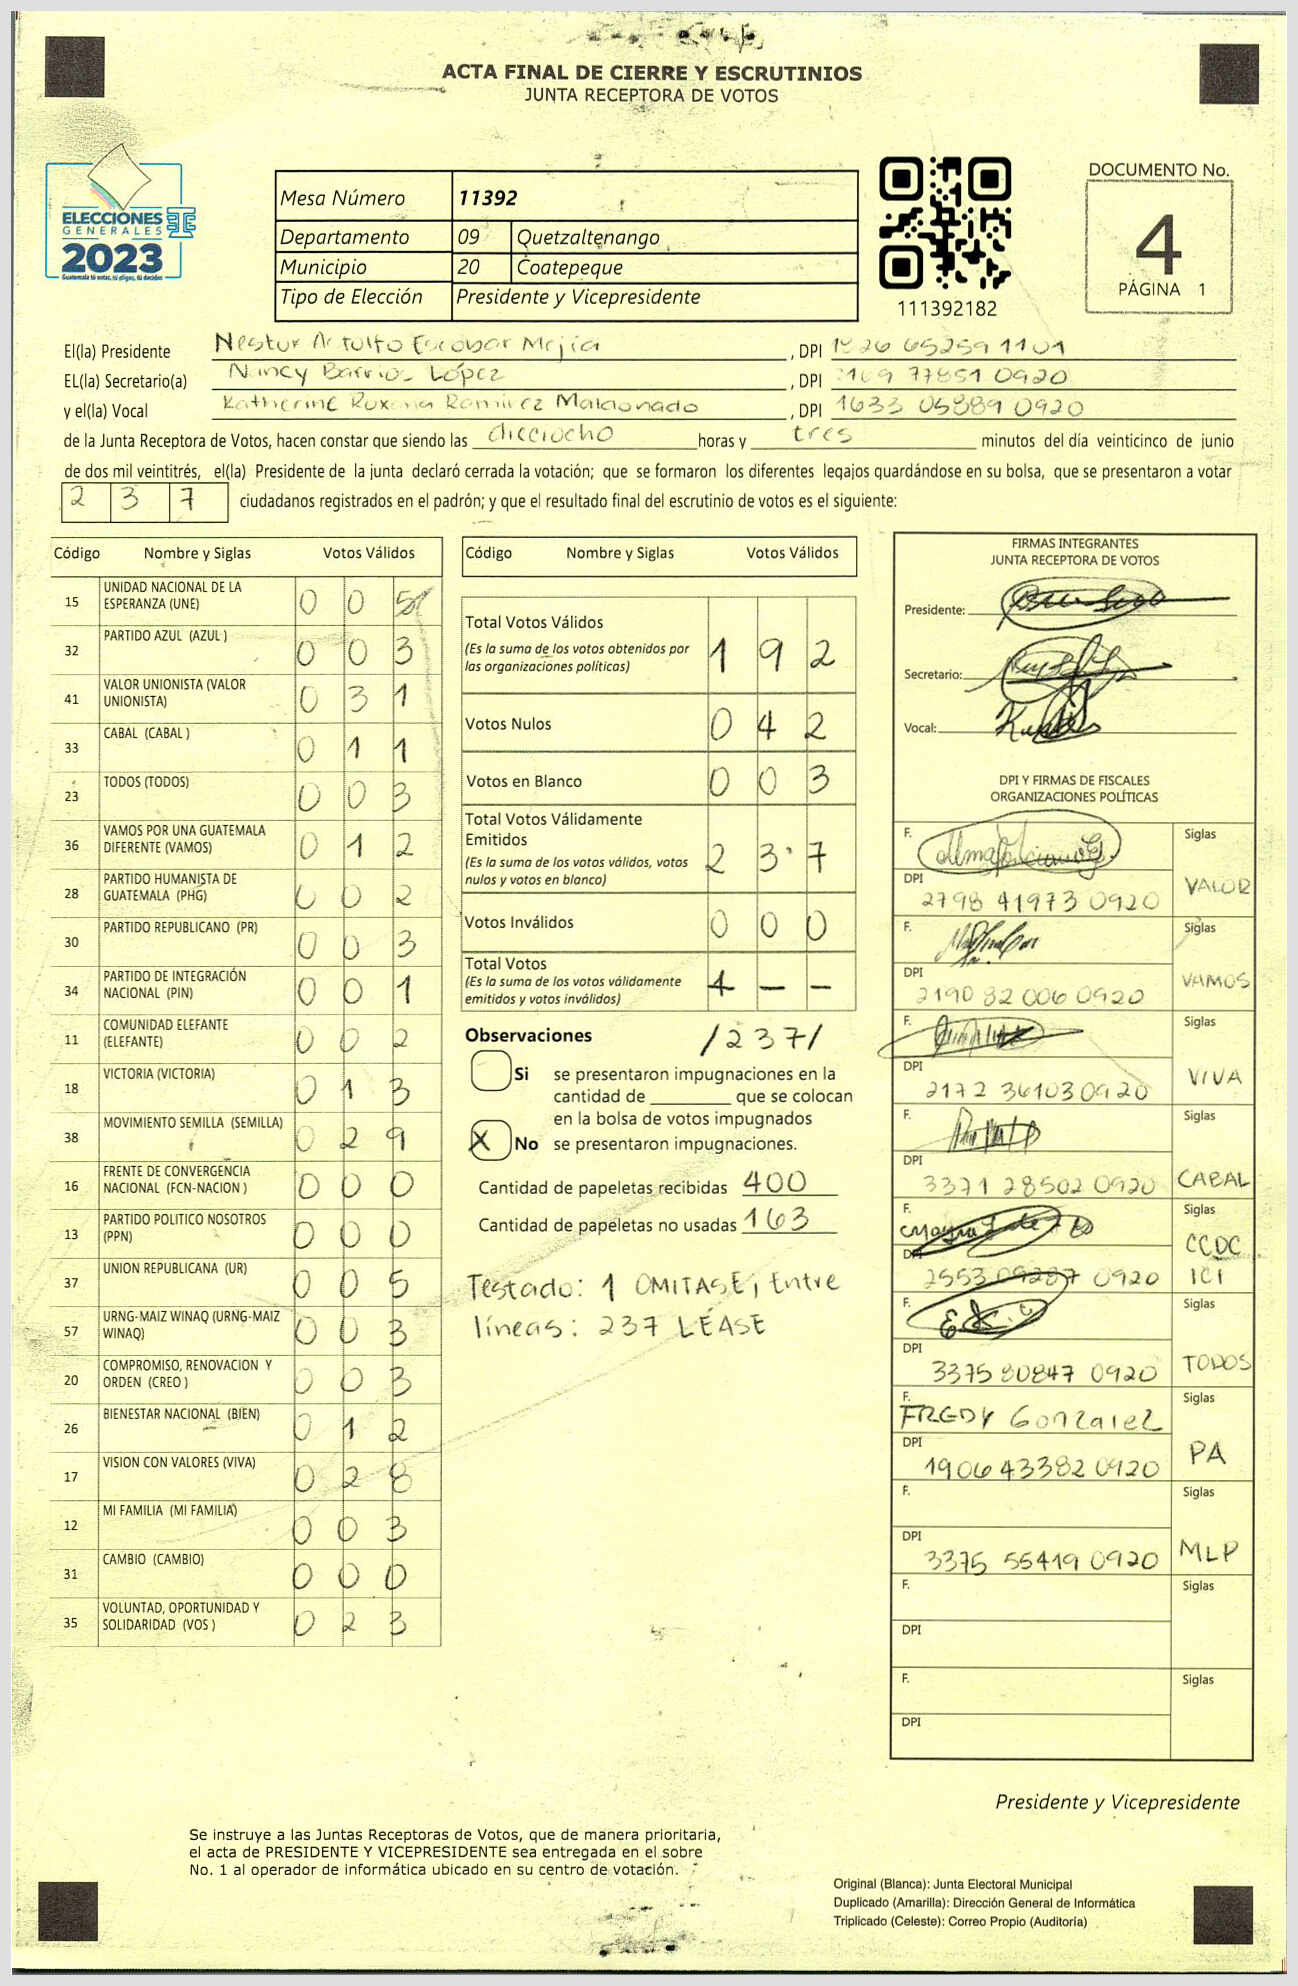 ACTA FINAL DE CIERRE Y ESCRUTINIOS
JUNTA RECEPTORA DE VOTOS
ELECCIONES
GENERALES
2023
Guatemala tú votas, tú eliges, tú decides
Mesa Número 11392
Departamento 09 Quetzaltenango
Municipio 20 Coatepeque
Tipo de Elección Presidente y Vicepresidente
111392182
DOCUMENTO No.
4
PÁGINA 1
El(la) Presidente Nestor Escobar Mejia, DPI 65259 1101
EL(la) Secretario(a) Nancy Barrios López, DPI 77851 0920
y el(la) Vocal Katherine Roxana Ramirez Maldonado, DPI 1633 05889 0920
de la Junta Receptora de Votos, hacen constar que siendo las dieciocho horas y tres minutos del día veinticinco de junio
de dos mil veintitrés, el(la) Presidente de la junta declaró cerrada la votación; que se formaron los diferentes legajos guardándose en su bolsa, que se presentaron a votar
237 ciudadanos registrados en el padrón; y que el resultado final del escrutinio de votos es el siguiente:
Código Nombre y Siglas Votos Válidos
15 UNIDAD NACIONAL DE LA ESPERANZA (UNE) 0 0 5
32 PARTIDO AZUL (AZUL ) 0 0 3
41 VALOR UNIONISTA (VALOR UNIONISTA) 0 3 1
33 CABAL (CABAL ) 0 1 1
23 TODOS (TODOS) 0 0 3
36 VAMOS POR UNA GUATEMALA DIFERENTE (VAMOS) 0 1 2
28 PARTIDO HUMANISTA DE GUATEMALA (PHG) 0 0 2
30 PARTIDO REPUBLICANO (PR) 0 0 3
34 PARTIDO DE INTEGRACIÓN NACIONAL (PIN) 0 0 1
11 COMUNIDAD ELEFANTE (ELEFANTE) 0 0 2
18 VICTORIA (VICTORIA) 0 1 3
38 MOVIMIENTO SEMILLA (SEMILLA) 0 2 9
16 FRENTE DE CONVERGENCIA NACIONAL (FCN-NACION ) 0 0 0
13 PARTIDO POLITICO NOSOTROS (PPN) 0 0 0
37 UNION REPUBLICANA (UR) 0 0 5
57 URNG-MAIZ WINAQ (URNG-MAIZ WINAQ) 0 0 3
20 COMPROMISO, RENOVACION Y ORDEN (CREO ) 0 0 3
26 BIENESTAR NACIONAL (BIEN) 0 1 2
17 VISION CON VALORES (VIVA) 0 2 8
12 MI FAMILIA (MI FAMILIA) 0 0 3
31 CAMBIO (CAMBIO) 0 0 0
35 VOLUNTAD, OPORTUNIDAD Y SOLIDARIDAD (VOS ) 0 2 3
Código Nombre y Siglas Votos Válidos
Total Votos Válidos 1 9 2
(Es la suma de los votos obtenidos por
las organizaciones políticas)
Votos Nulos 0 4 2
Votos en Blanco 0 0 3
Total Votos Válidamente
Emitidos
(Es la suma de los votos válidos, votos
nulos y votos en blanco) 2 3 7
Votos Inválidos 0 0 0
Total Votos
(Es la suma de los votos válidamente
emitidos y votos inválidos) 1 – –
Observaciones /237/
Si se presentaron impugnaciones en la
cantidad de ________ que se colocan
en la bolsa de votos impugnados
X No se presentaron impugnaciones.
Cantidad de papeletas recibidas 400
Cantidad de papeletas no usadas 163
Testado: 1 OMITASE; Entre
líneas: 237 LÉASE
FIRMAS INTEGRANTES
JUNTA RECEPTORA DE VOTOS
Presidente:
Secretario:
Vocal:
DPI Y FIRMAS DE FISCALES
ORGANIZACIONES POLÍTICAS
F. Siglas
DPI 2798 41973 0920 VALOR
F. Siglas
DPI 2190 82006 0920 VAMOS
F. Siglas
DPI 2172 36103 0920 VIVA
F. Siglas
DPI 3371 28502 0920 CABAL
F. Siglas
DPI 2553 09287 0920 CCDC ICI
F. Siglas
DPI 3375 80847 0920 TODOS
F. FREDY Gonzalez Siglas
DPI 1906 43382 0920 PA
F. Siglas
DPI 3375 55419 0920 MLP
F. Siglas
DPI
F. Siglas
DPI
Presidente y Vicepresidente
Se instruye a las Juntas Receptoras de Votos, que de manera prioritaria,
el acta de PRESIDENTE Y VICEPRESIDENTE sea entregada en el sobre
No. 1 al operador de informática ubicado en su centro de votación.
Original (Blanca): Junta Electoral Municipal
Duplicado (Amarilla): Dirección General de Informática
Triplicado (Celeste): Correo Propio (Auditoría)